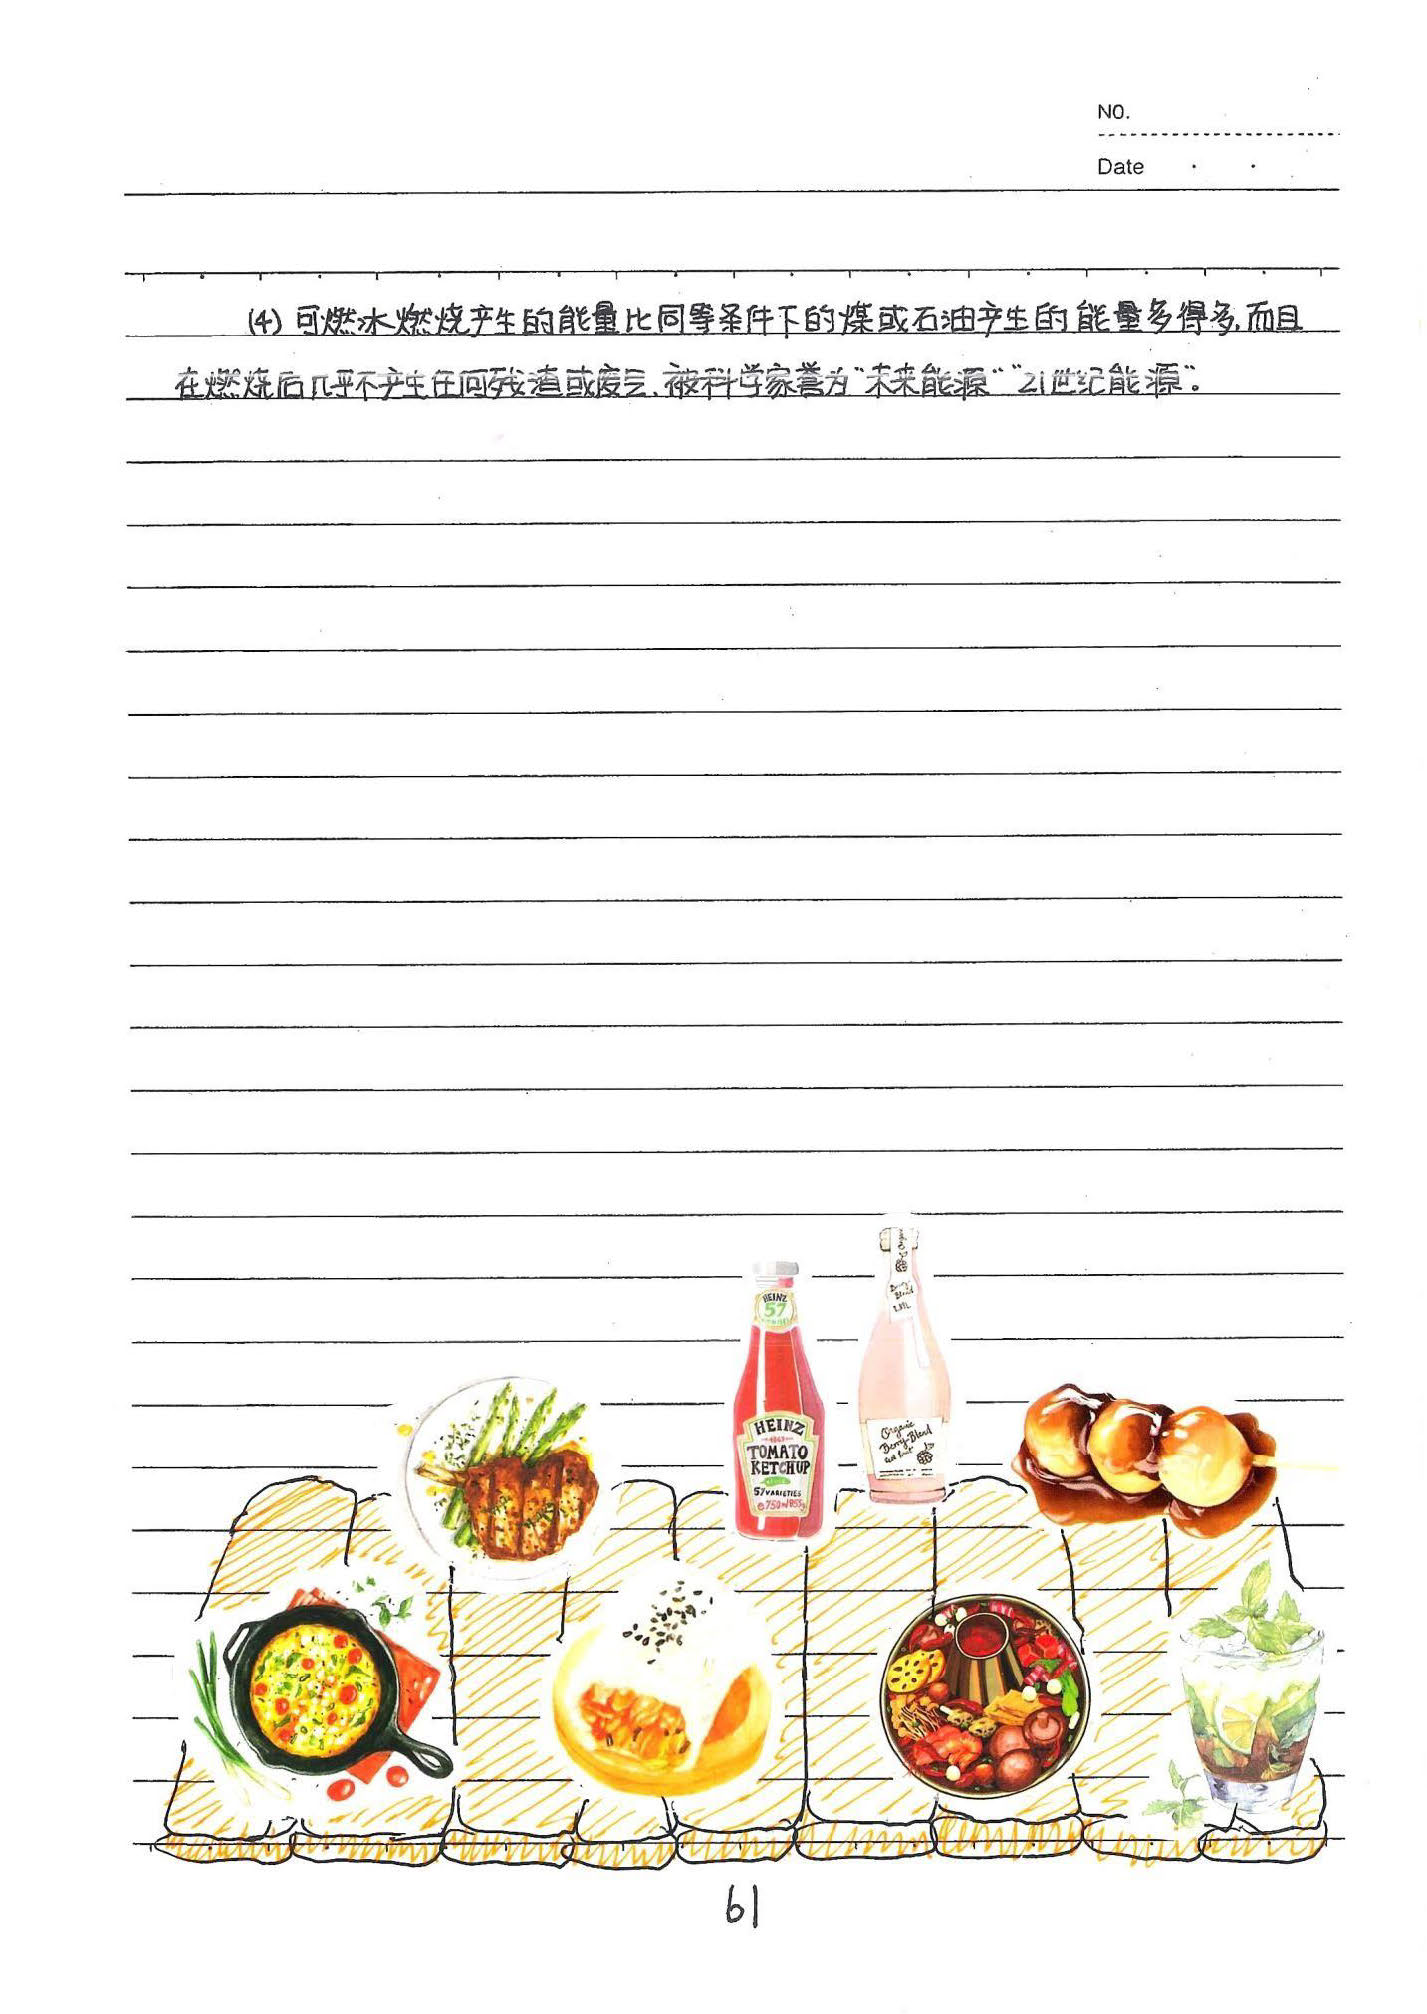 NO.
Date
(4) 可燃冰燃烧产生的能量比同等条件下的煤或石油产生的能量多得多,而且
在燃烧后几乎不产生任何残渣或废气、被科学家誉为“未来能源”“21世纪能源”。
Organic
Berry
Blend
HEINZ
57
HEINZ
1869
TOMATO
KETCHUP
57 VARIETIES
e 750ml 855g
Organic
Berry-Blend
61